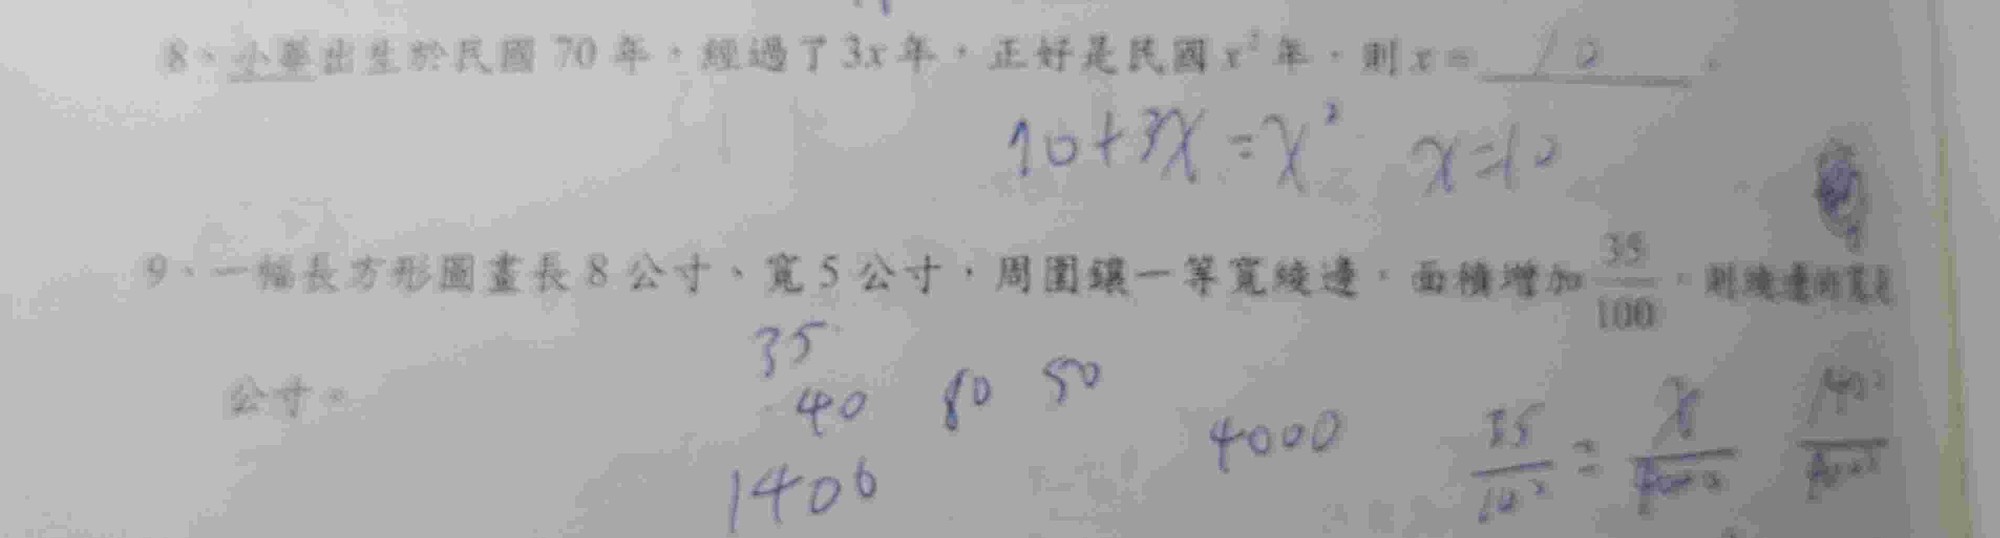 8、小華出生於民國 70 年,經過了 3x 年,正好是民國 x² 年,則 x= 10 。
70+3x=x² x=10
9、一幅長方形圖畫長 8 公寸、寬 5 公寸,周圍鑲一等寬綾邊,面積增加 35/100,則綾邊的寬是
公寸。
35
40 80 50
1400 4000 35/10² = x/4000